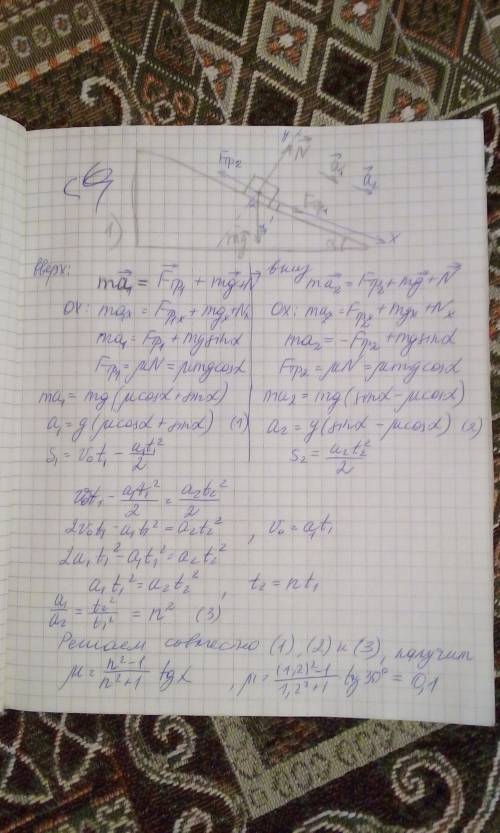 1)
Fтр2
y
N⃗
a⃗1
a⃗2
Fтр1
mg⃗
α
x
вверх:
ma⃗1 = F⃗тр1 + mg⃗ + N⃗
ox: ma1x = Fтр1x + mgx + Nx
ma1 = Fтр1 + mgsinα
Fтр1 = μN = μmgcosα
ma1 = mg(μcosα + sinα)
a1 = g(μcosα + sinα) (1)
S1 = v0t1 - a1t1²/2
вниз
ma⃗2 = F⃗тр2 + mg⃗ + N⃗
ox: ma2x = Fтр2x + mgx + Nx
ma2 = -Fтр2 + mgsinα
Fтр2 = μN = μmgcosα
ma2 = mg(sinα - μcosα)
a2 = g(sinα - μcosα) (2)
S2 = a2t2²/2
v0t1 - a1t1²/2 = a2t2²/2
2v0t1 - a1t1² = a2t2² , v0 = a1t1
2a1t1² - a1t1² = a2t2²
a1t1² = a2t2² , t2 = nt1
a1/a2 = t2²/t1² = n² (3)
Решаем совместно (1), (2) и (3), получит
μ = n²-1/n²+1 tgα , μ = (1,2)²-1/1,2²+1 tg30° = 0,1